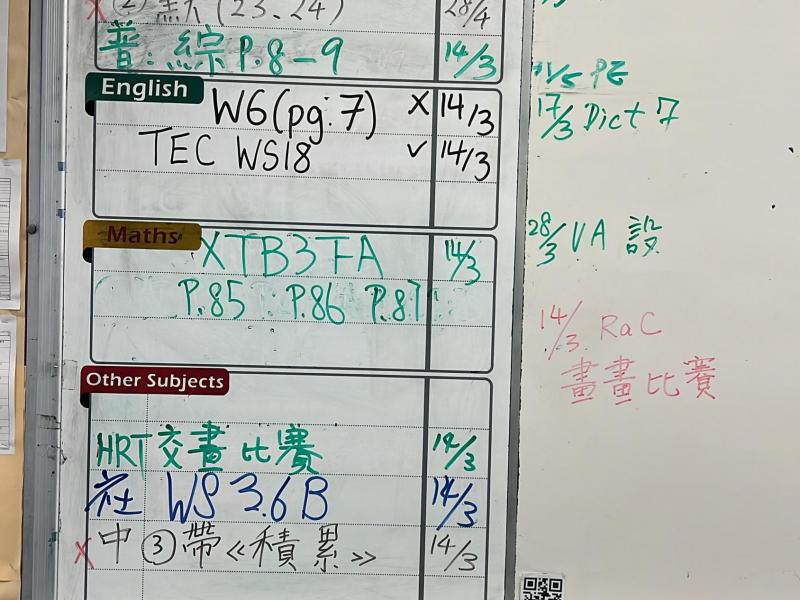 X ② (23、24) 28/4
普:綜 P.8-9 14/3
English
W6(pg.7) X 14/3
TEC WS18 ✓ 14/3
Maths
X TB3FA 14/3
P.85 P.86 P.87
Other Subjects
HRT 交畫比賽 14/3
社 WS 3.6B 14/3
X 中 ③ 帶《積累》 14/3
PE
17/3 Dict 7
28/3 VA 設
14/3 RaC
畫畫比賽